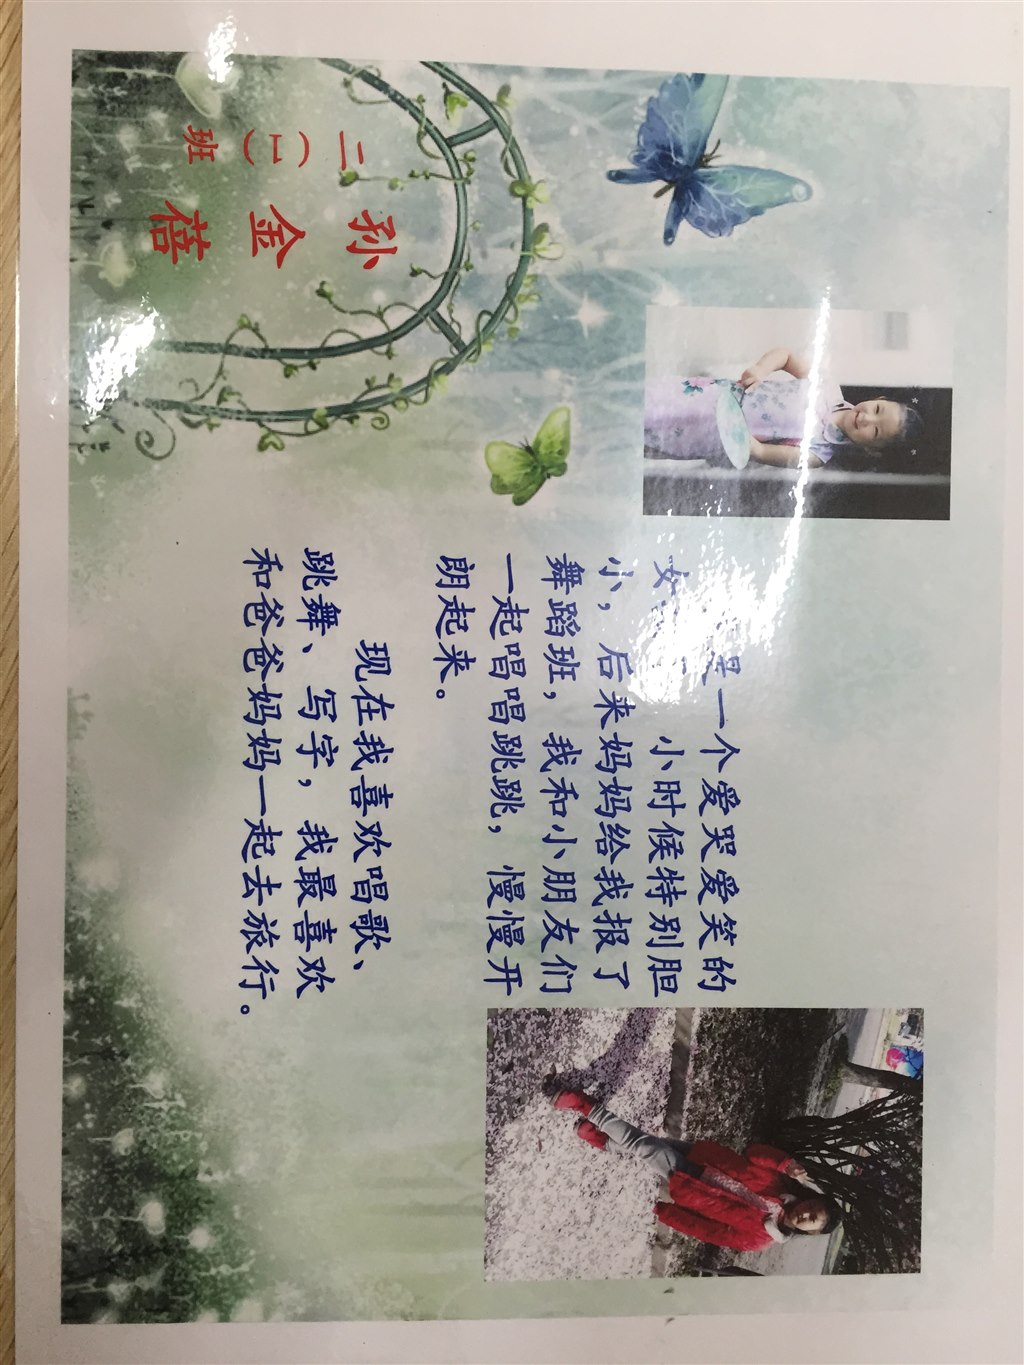 二（1）班
孙金蓓
是一个爱哭爱笑的
女 小时候特别胆
小，后来妈妈给我报了
舞蹈班，我和小朋友们
一起唱唱跳跳，慢慢开
朗起来。
现在我喜欢唱歌、
跳舞、写字，我最喜欢
和爸爸妈妈一起去旅行。